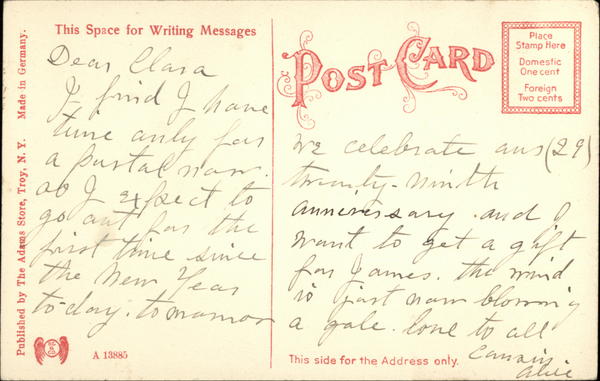 This Space for Writing Messages
Dear Clara
I find I have
time only for
a postal now.
as I expect to
go out for the
first time since
the New Year
to-day. tomorrow
POST CARD
Place
Stamp Here
Domestic
One cent
Foreign
Two cents
we celebrate our (29)
twenty-ninth
anniversary. and I
want to get a gift
for James. the wind
is just now blowing
a gale. love to all
Cousin
Alice
This side for the Address only.
A 13885
Published by The Adams Store, Troy, N. Y. Made in Germany.